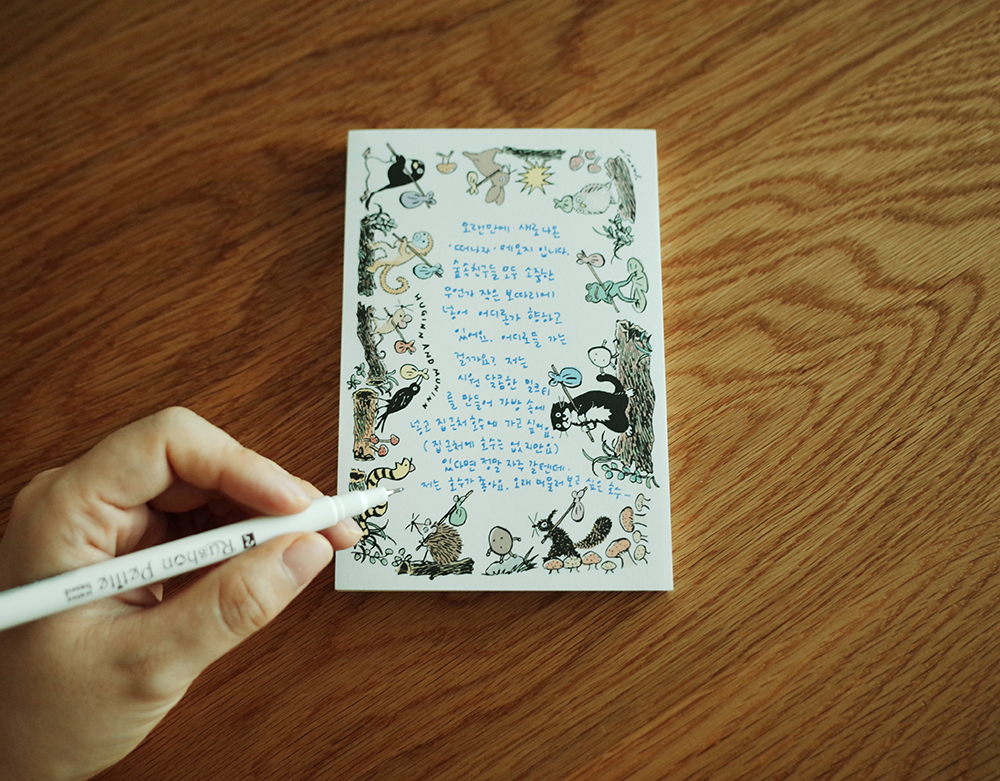 오랜만에 새로나온
'떠나자' 메모지 입니다.
숲속친구들 모두 소중한
무언가 작은 보따리에
넣어 어디론가 향하고
있어요. 어디로들 가는
걸까요? 저는
시원 달콤한 밀크티
를 만들어 가방 속에
넣고 집근처 호수에 가고 싶어요.
(집근처에 호수는 없지만요)
있다면 정말 자주 갈텐데.
저는 호수가 좋아요. 오래 머물러 보고 싶은 호수-
HUGINN AND MUNINN
Rushon Petite